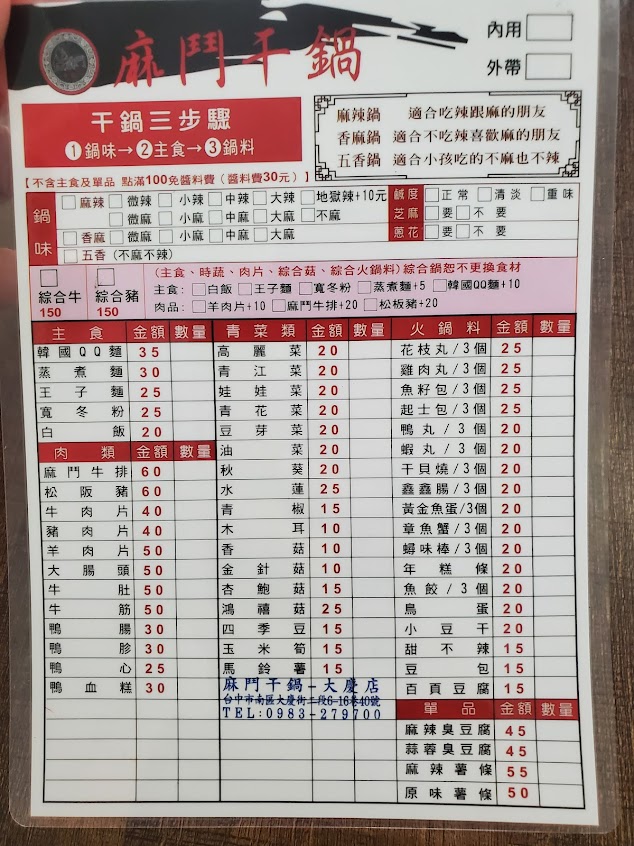 麻鬥干鍋
內用
外帶
干鍋三步驟
①鍋味→②主食→③鍋料
麻辣鍋 適合吃辣跟麻的朋友
香麻鍋 適合不吃辣喜歡麻的朋友
五香鍋 適合小孩吃的不麻也不辣
【不含主食及單品 點滿100免醬料費（醬料費30元）】
鍋味
麻辣 微辣 小辣 中辣 大辣 地獄辣+10元
微麻 小麻 中麻 大麻 不麻
香麻 微麻 小麻 中麻 大麻
五香 (不麻不辣)
鹹度 正常 清淡 重味
芝麻 要 不要
蔥花 要 不要
綜合牛 150
綜合豬 150
(主食、時蔬、肉片、綜合菇、綜合火鍋料)綜合鍋恕不更換食材
主食: 白飯 王子麵 寬冬粉 蒸煮麵+5 韓國QQ麵+10
肉品: 羊肉片+10 麻鬥牛排+20 松板豬+20
主食 金額 數量
韓國QQ麵 35
蒸煮麵 30
王子麵 25
寬冬粉 25
白飯 20
肉類 金額 數量
麻鬥牛排 60
松阪豬 60
牛肉片 40
豬肉片 40
羊肉片 50
大腸頭 50
牛肚 50
牛筋 50
鴨腸 30
鴨胗 30
鴨心 25
鴨血糕 30
青菜類 金額 數量
高麗菜 20
青江菜 20
娃娃菜 20
青花菜 20
豆芽菜 20
油菜 20
秋葵 20
水蓮 25
青椒 15
木耳 10
香菇 10
金針菇 10
杏鮑菇 15
鴻禧菇 25
四季豆 15
玉米筍 15
馬鈴薯 15
麻鬥干鍋-大慶店
台中市南區大慶街二段6-16巷40號
TEL:0983-279700
火鍋料 金額 數量
花枝丸/3個 25
雞肉丸/3個 25
魚籽包/3個 25
起士包/3個 25
鴨丸/3個 20
蝦丸/3個 20
干貝燒/3個 20
鑫鑫腸/3個 20
黃金魚蛋/3個 20
章魚蟹/3個 20
蟳味棒/3個 20
年糕條 20
魚餃/3個 20
鳥蛋 20
小豆干 20
甜不辣 15
豆包 15
百頁豆腐 15
單品 金額 數量
麻辣臭豆腐 45
蒜蓉臭豆腐 45
麻辣薯條 55
原味薯條 50